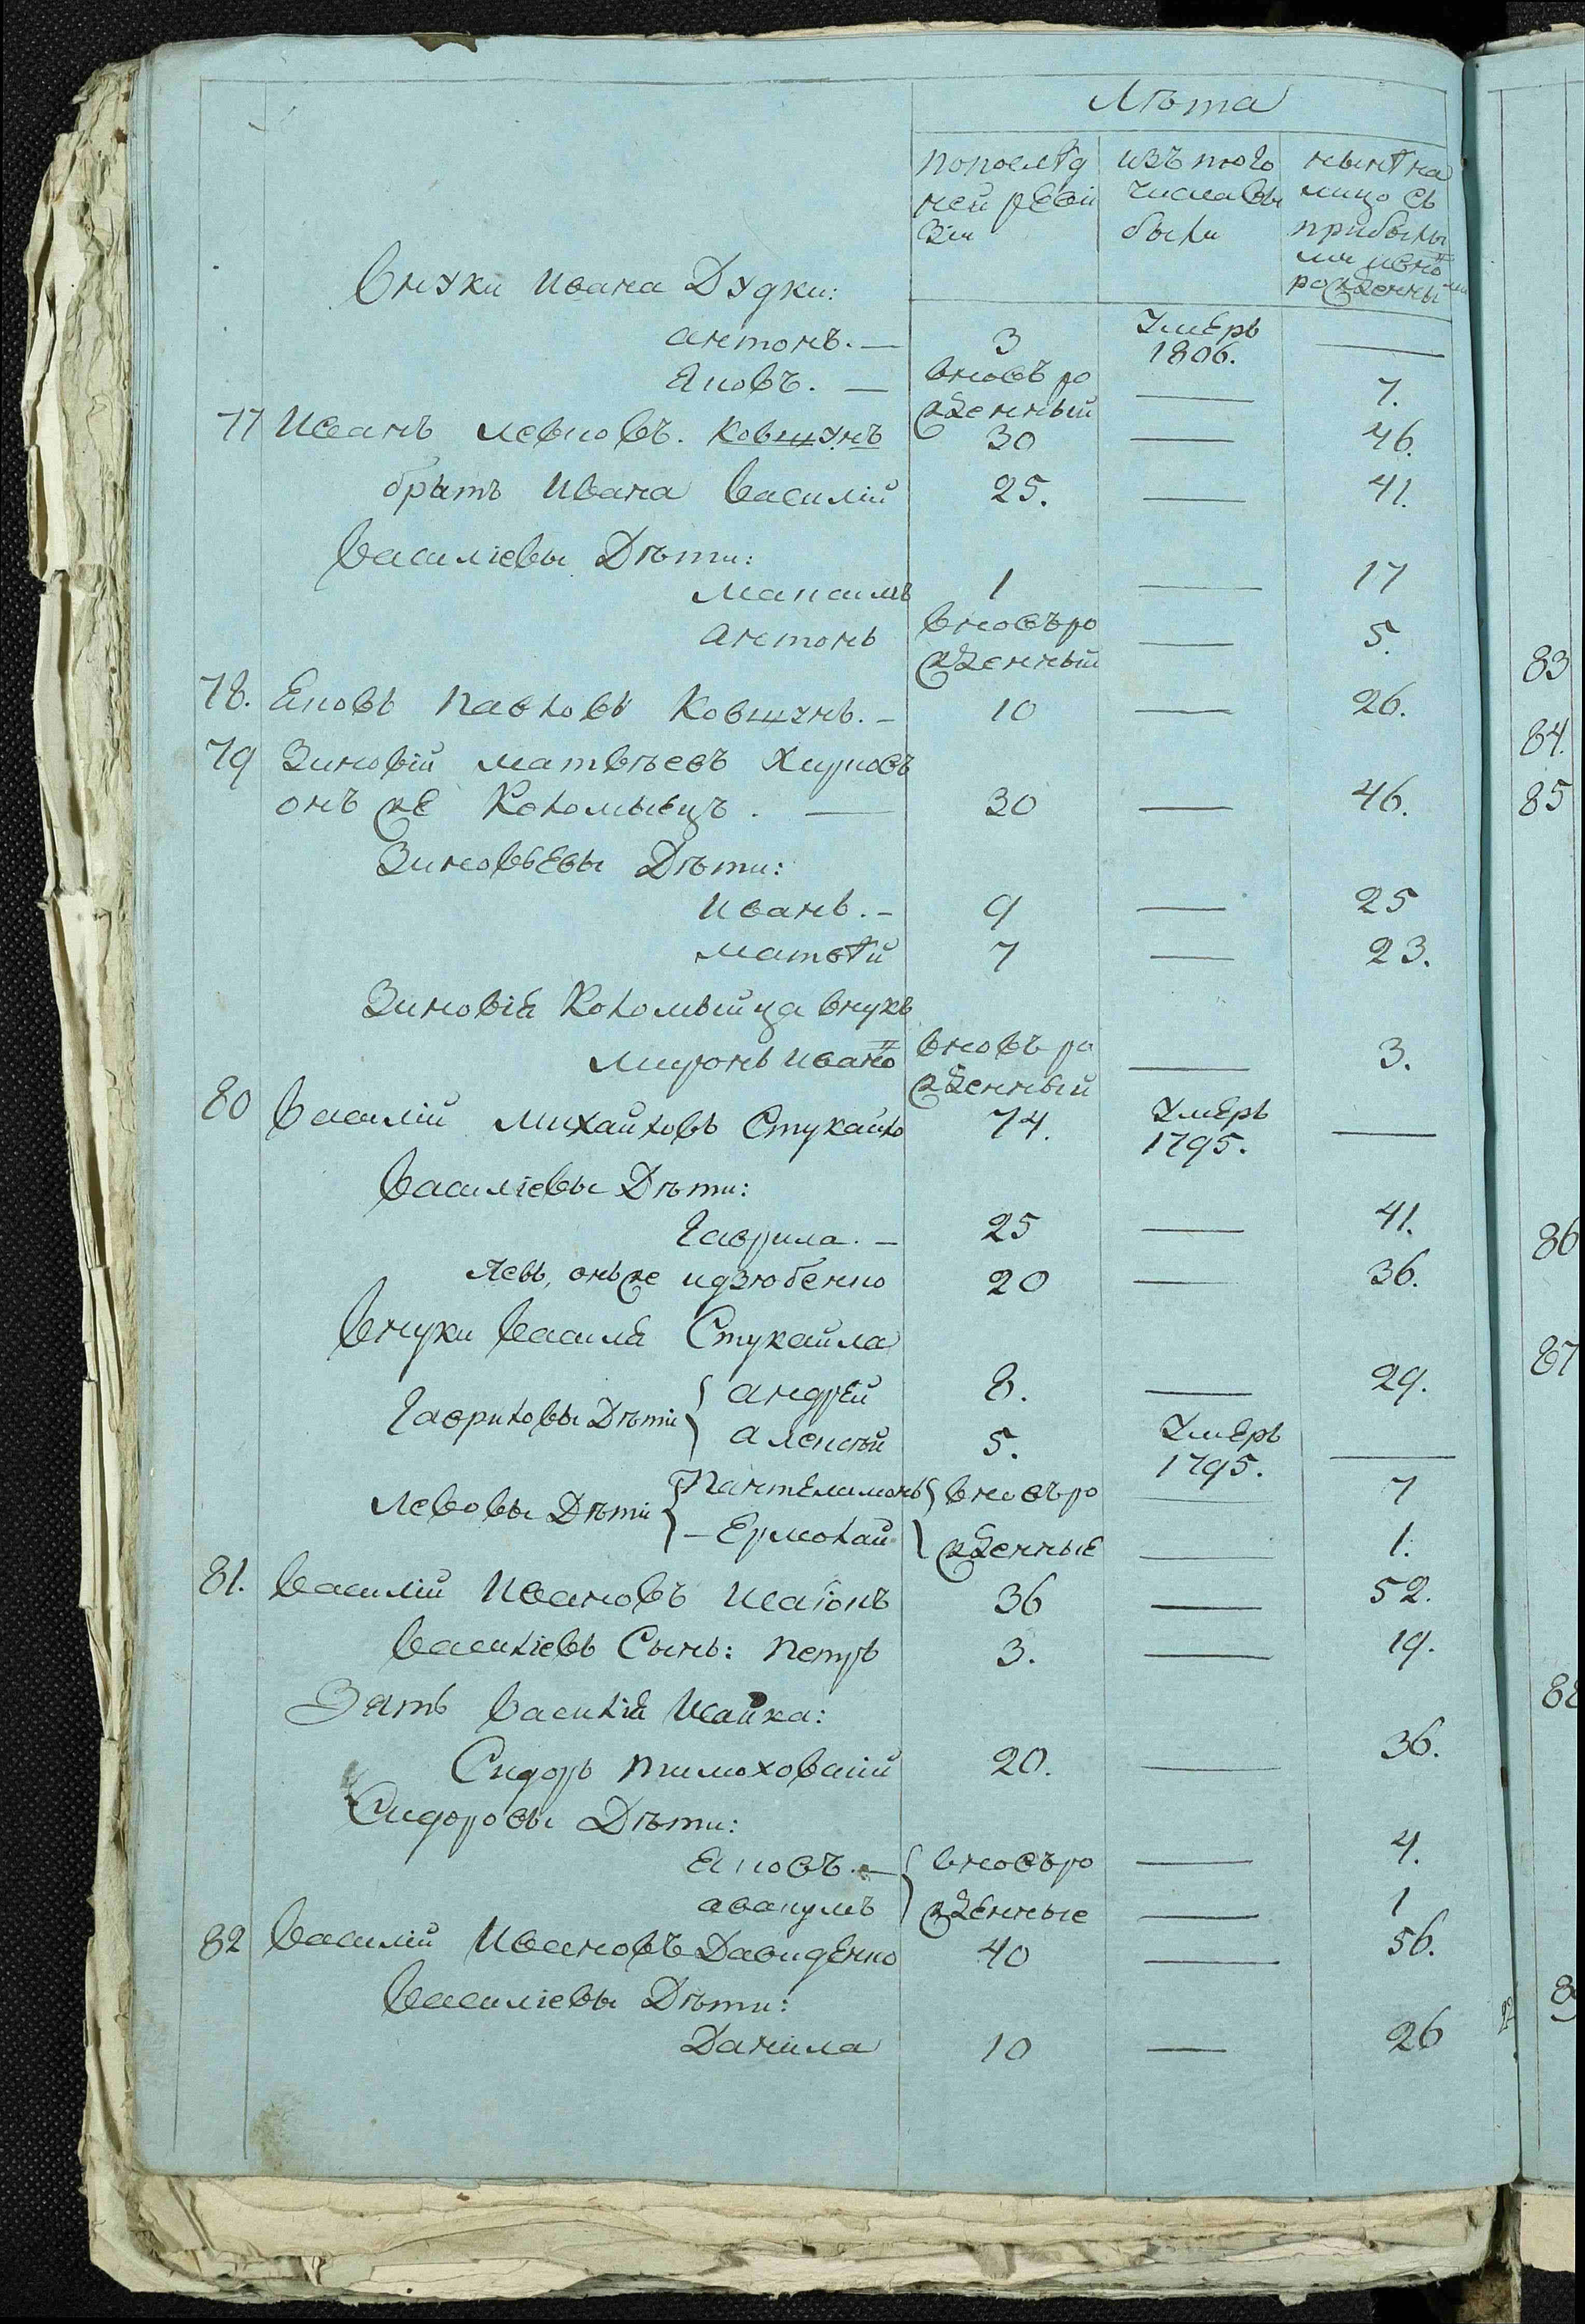 Лѣта
попослѣд ней ревизіи
изъ того числа выбыли
нынѣ на лицо съ прибылыми и вновь рожденными
Внуки Ивана Дудки:
антонъ. — 3 Умеръ 1806. —
Яковъ. — вновь рожденный — 7.
77 Иванъ Леоновъ. Ковшунъ 30 — 46.
братъ Ивана Василій 25. — 41.
Василіевы Дѣти:
1 — 17
антонъ вновь рожденный — 5.
78. Яковъ Павловъ Ковшунъ. — 10 — 26.
79 Зиновій матвѣевъ
онъ же Коломыецъ. — 30 — 46.
Зиновьевы Дѣти:
Иванъ. — 9 — 25
матвѣй 7 — 23.
Зиновія Коломыйца внукъ
миронъ Ивановъ вновь рожденный — 3.
80 Василій Михайловъ Стукайло 74. Умеръ 1795. —
Василіевы Дѣти:
Гаврила. — 25 — 41.
Левъ, онъ же идзюбенко 20 — 36.
Внуки Василя Стукайла
Гавриловы Дѣти { андрей 8. — 29.
алексѣй 5. Умеръ 1795. —
Левовы Дѣти { Пантелимонъ } вновь ро — 7
— Ермолай } жденные — 1.
81. Василій Ивановъ 36 — 52.
Василіевъ Сынъ: Петръ 3. — 19.
Зять Василія Исайка:
Сидоръ тимоховскій 20. — 36.
Сидоровы Дѣти:
Яковъ. — { вновь ро — 4.
авакумъ } жденные — 1
82 Василій Ивановъ Давиденко 40 — 56.
Василіевы Дѣти:
Данила 10 — 26
83
84.
85
86
87